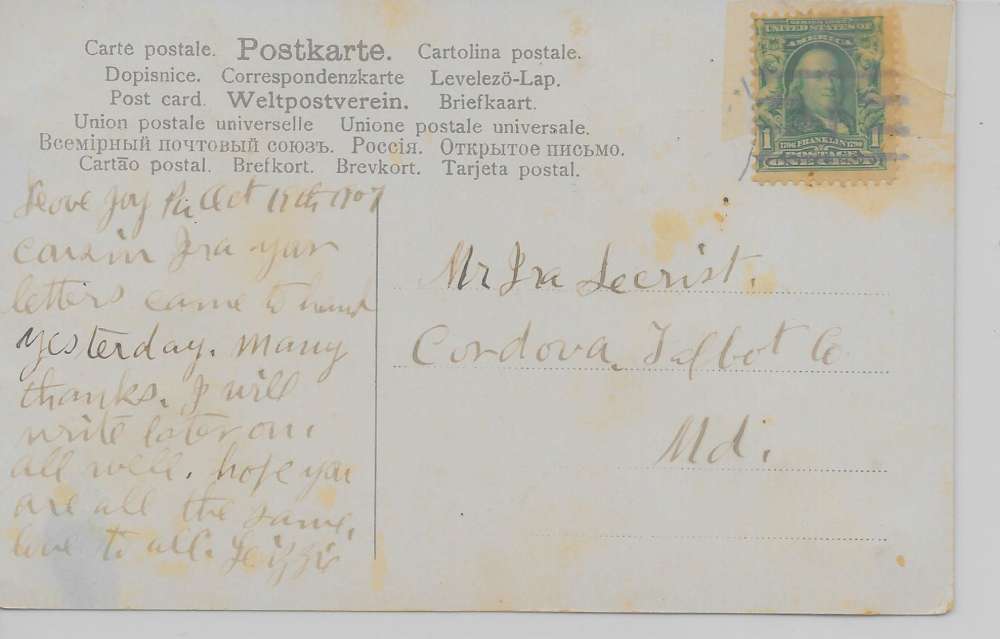 Carte postale. Postkarte. Cartolina postale.
Dopisnice. Correspondenzkarte Levelezö-Lap.
Post card. Weltpostverein. Briefkaart.
Union postale universelle Unione postale universale.
Всемірный почтовый союзъ. Россія. Открытое письмо.
Cartão postal. Brefkort. Brevkort. Tarjeta postal.
SERIES 1902
UNITED STATES OF
AMERICA
1 1706 FRANKLIN 1790 1
POSTAGE
ONE CENT
Joy Pa Oct 1907
cousin Ira your
letters came to hand
yesterday. Many
thanks. I will
write later on.
all well. hope you
are all the same.
love to all. Lizzie
Mr Ira Secrist.
Cordova, Talbot Co
Md.